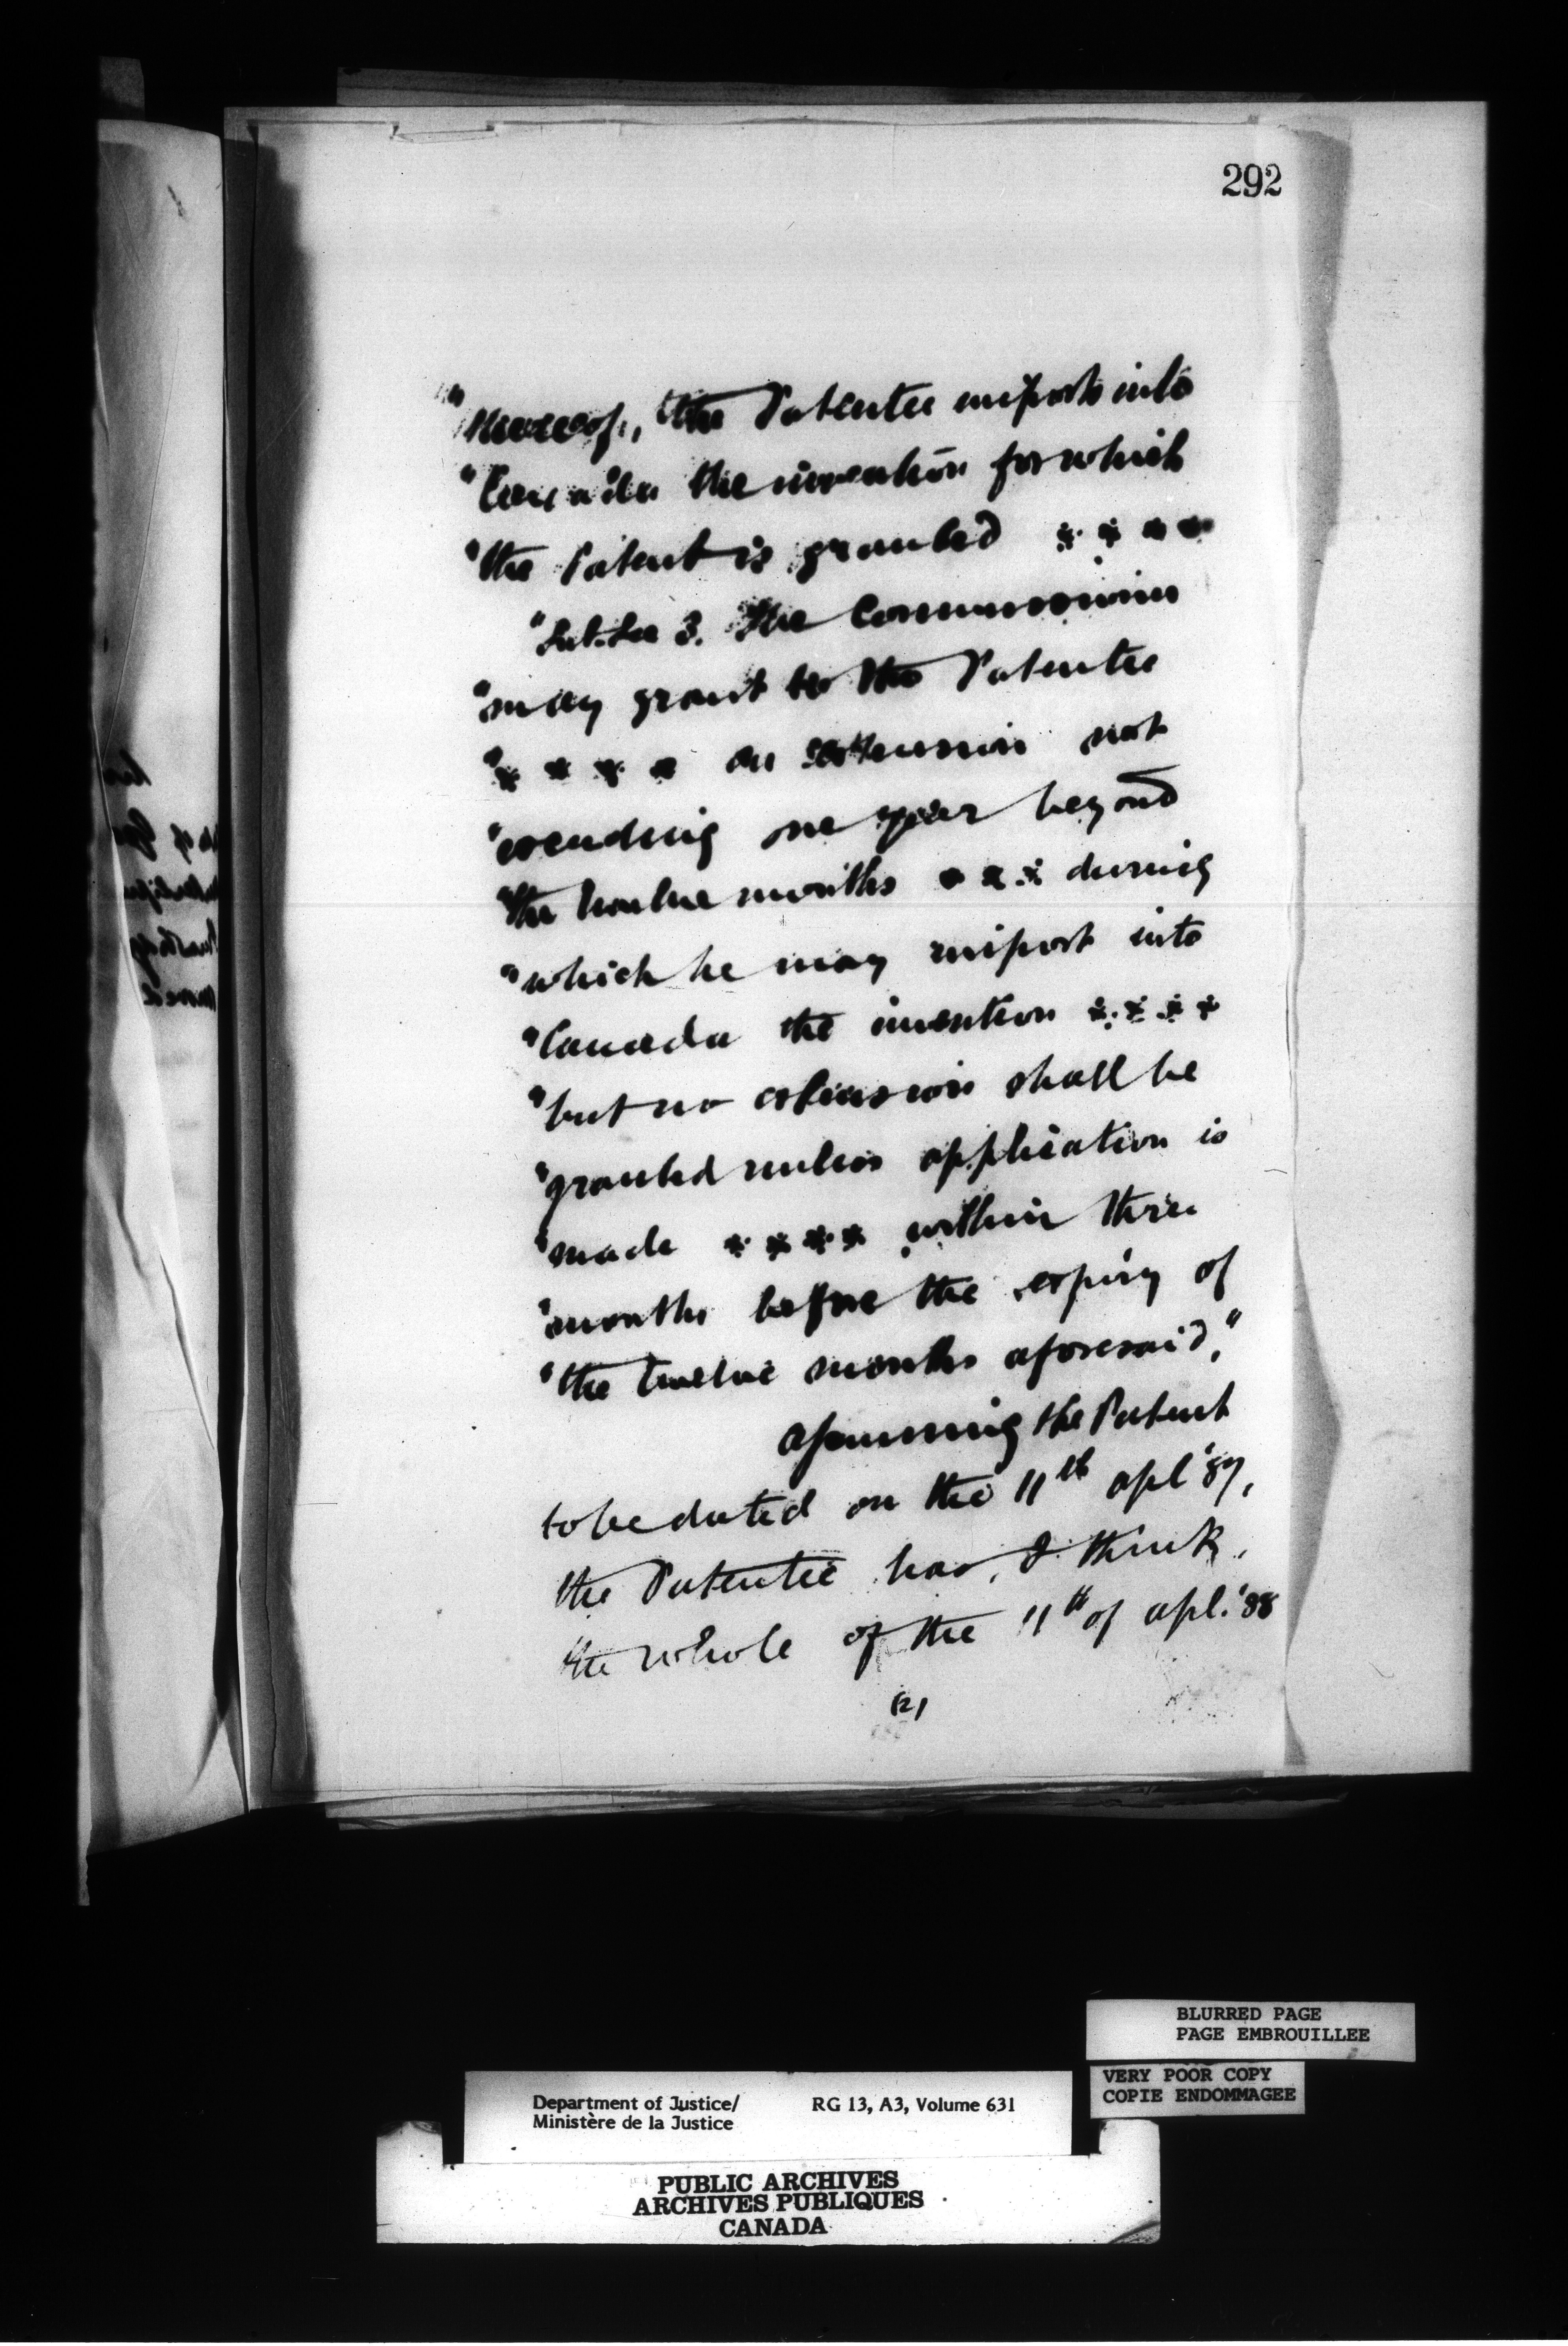 292
"thereof, the Patentee imports into
"Canada the invention for which
"the Patent is granted * * * *
"Sub. Sec 3. The Commissioner
"may grant to the Patentee
"* * * * an extension not
"exceeding one year beyond
"the twelve months * * * during
"which he may import into
"Canada the invention * * * *
"but no extension shall be
"granted unless application is
"made * * * * within three
"months before the expiry of
"the twelve months aforesaid."
Assuming the Patent
to be dated on the 11th apl '87,
the Patentee has, I think,
the whole of the 11th of apl. '88
(2)
BLURRED PAGE
PAGE EMBROUILLEE
VERY POOR COPY
COPIE ENDOMMAGEE
Department of Justice/ RG 13, A3, Volume 631
Ministère de la Justice
PUBLIC ARCHIVES
ARCHIVES PUBLIQUES
CANADA